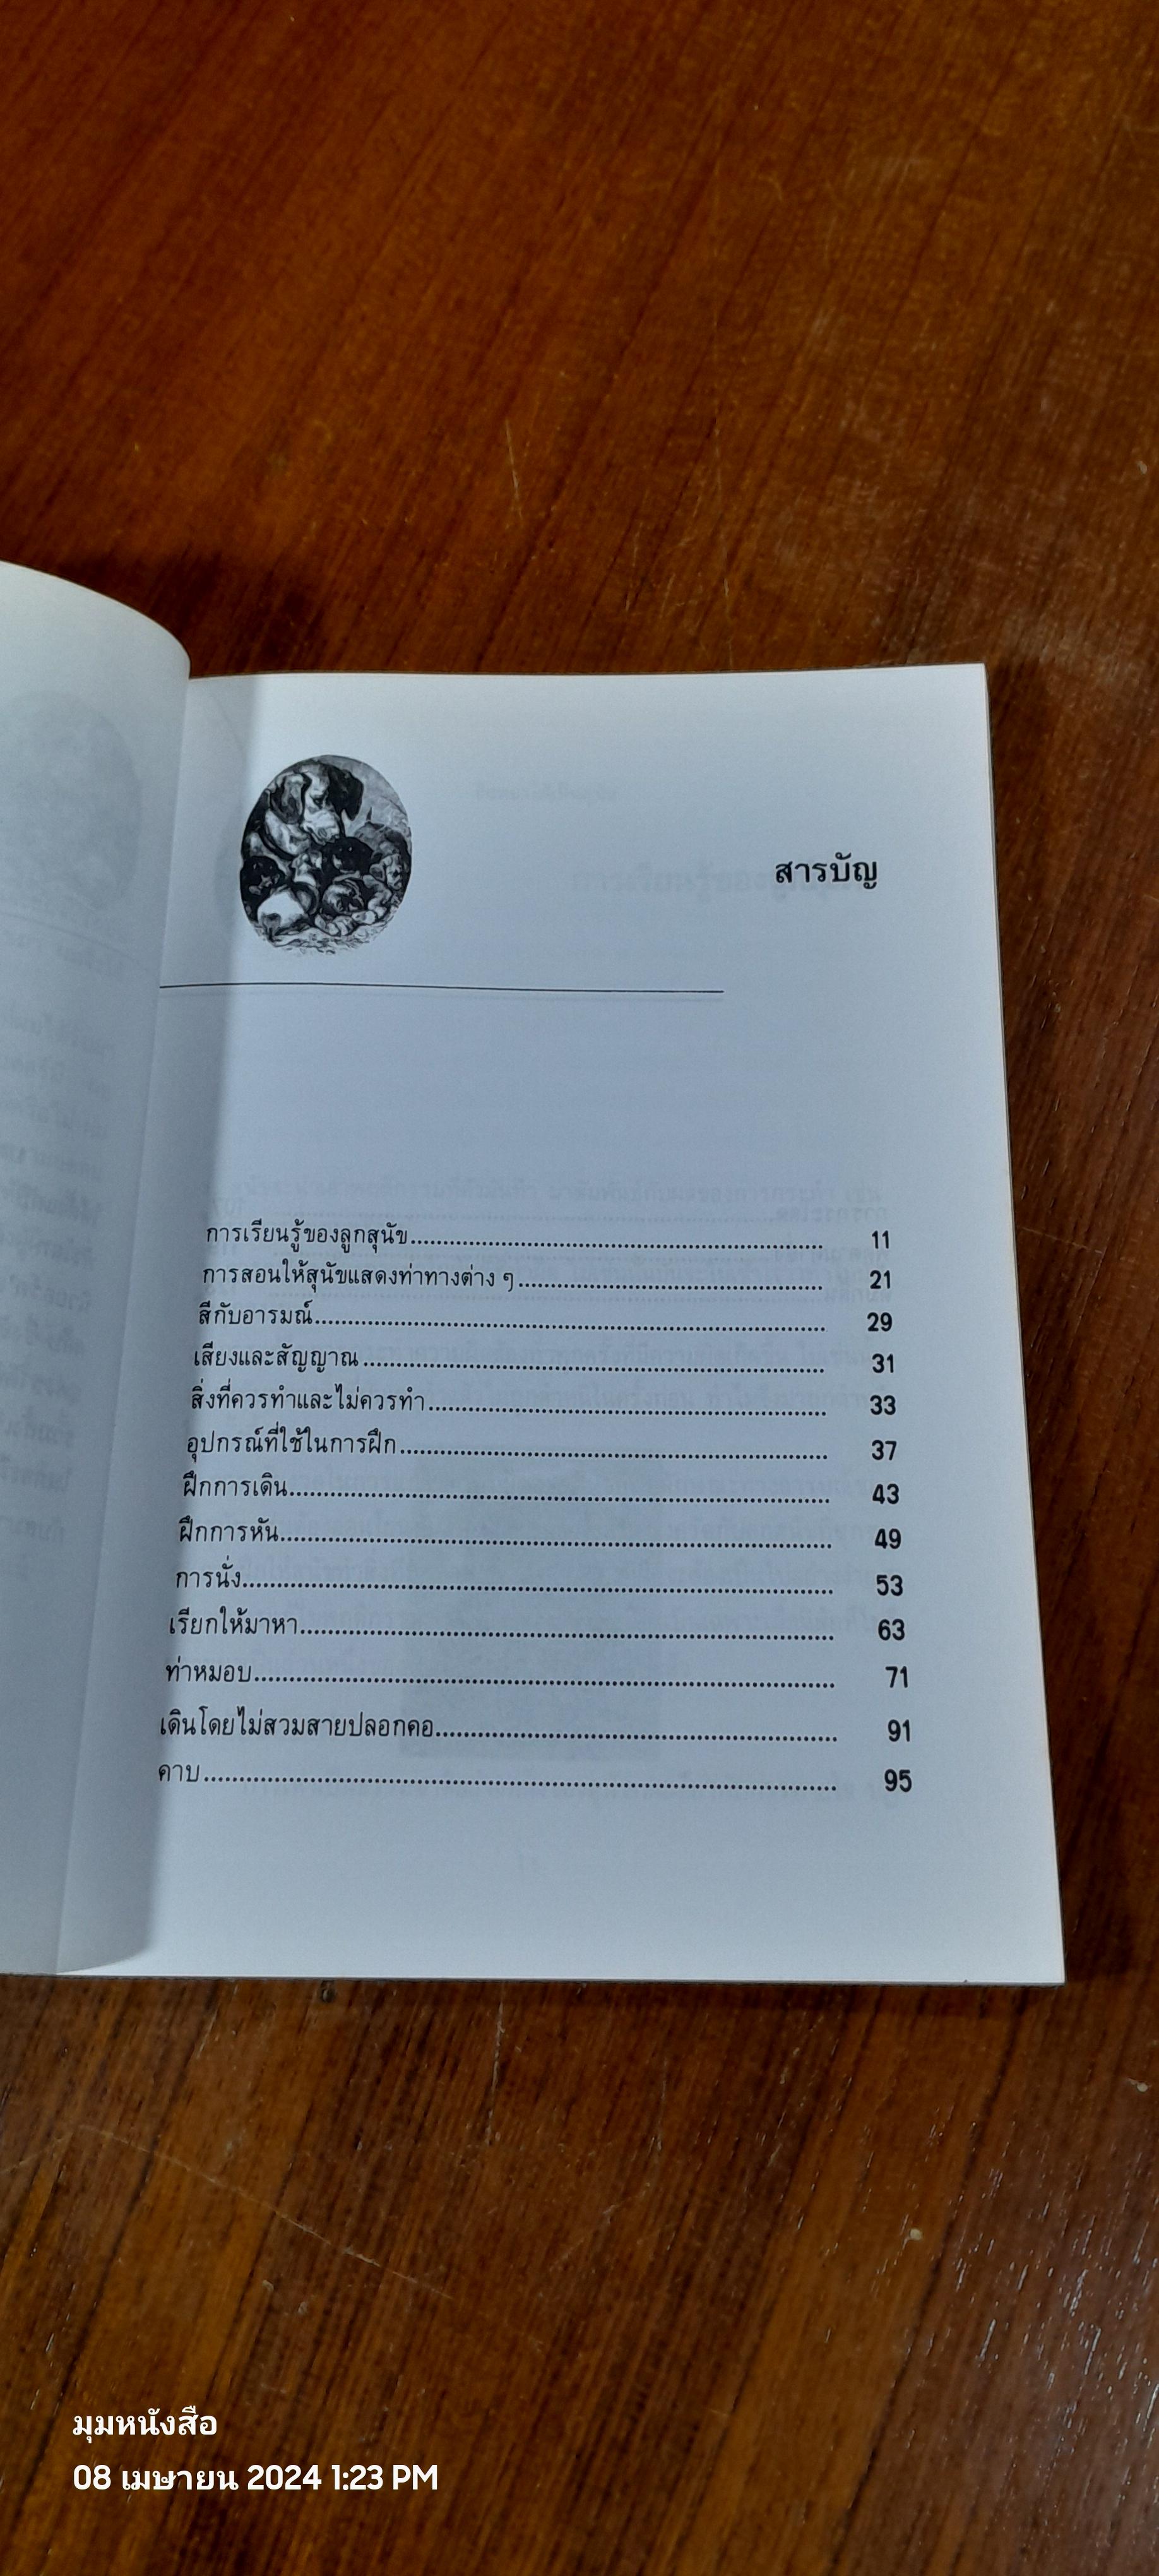 สารบัญ
การเรียนรู้ของลูกสุนัข 11
การสอนให้สุนัขแสดงท่าทางต่าง ๆ 21
สีกับอารมณ์ 29
เสียงและสัญญาณ 31
สิ่งที่ควรทำและไม่ควรทำ 33
อุปกรณ์ที่ใช้ในการฝึก 37
ฝึกการเดิน 43
ฝึกการหัน 49
การนั่ง 53
เรียกให้มาหา 63
ท่าหมอบ 71
เดินโดยไม่สวมสายปลอกคอ 91
คาบ 95
มุมหนังสือ
08 เมษายน 2024 1:23 PM